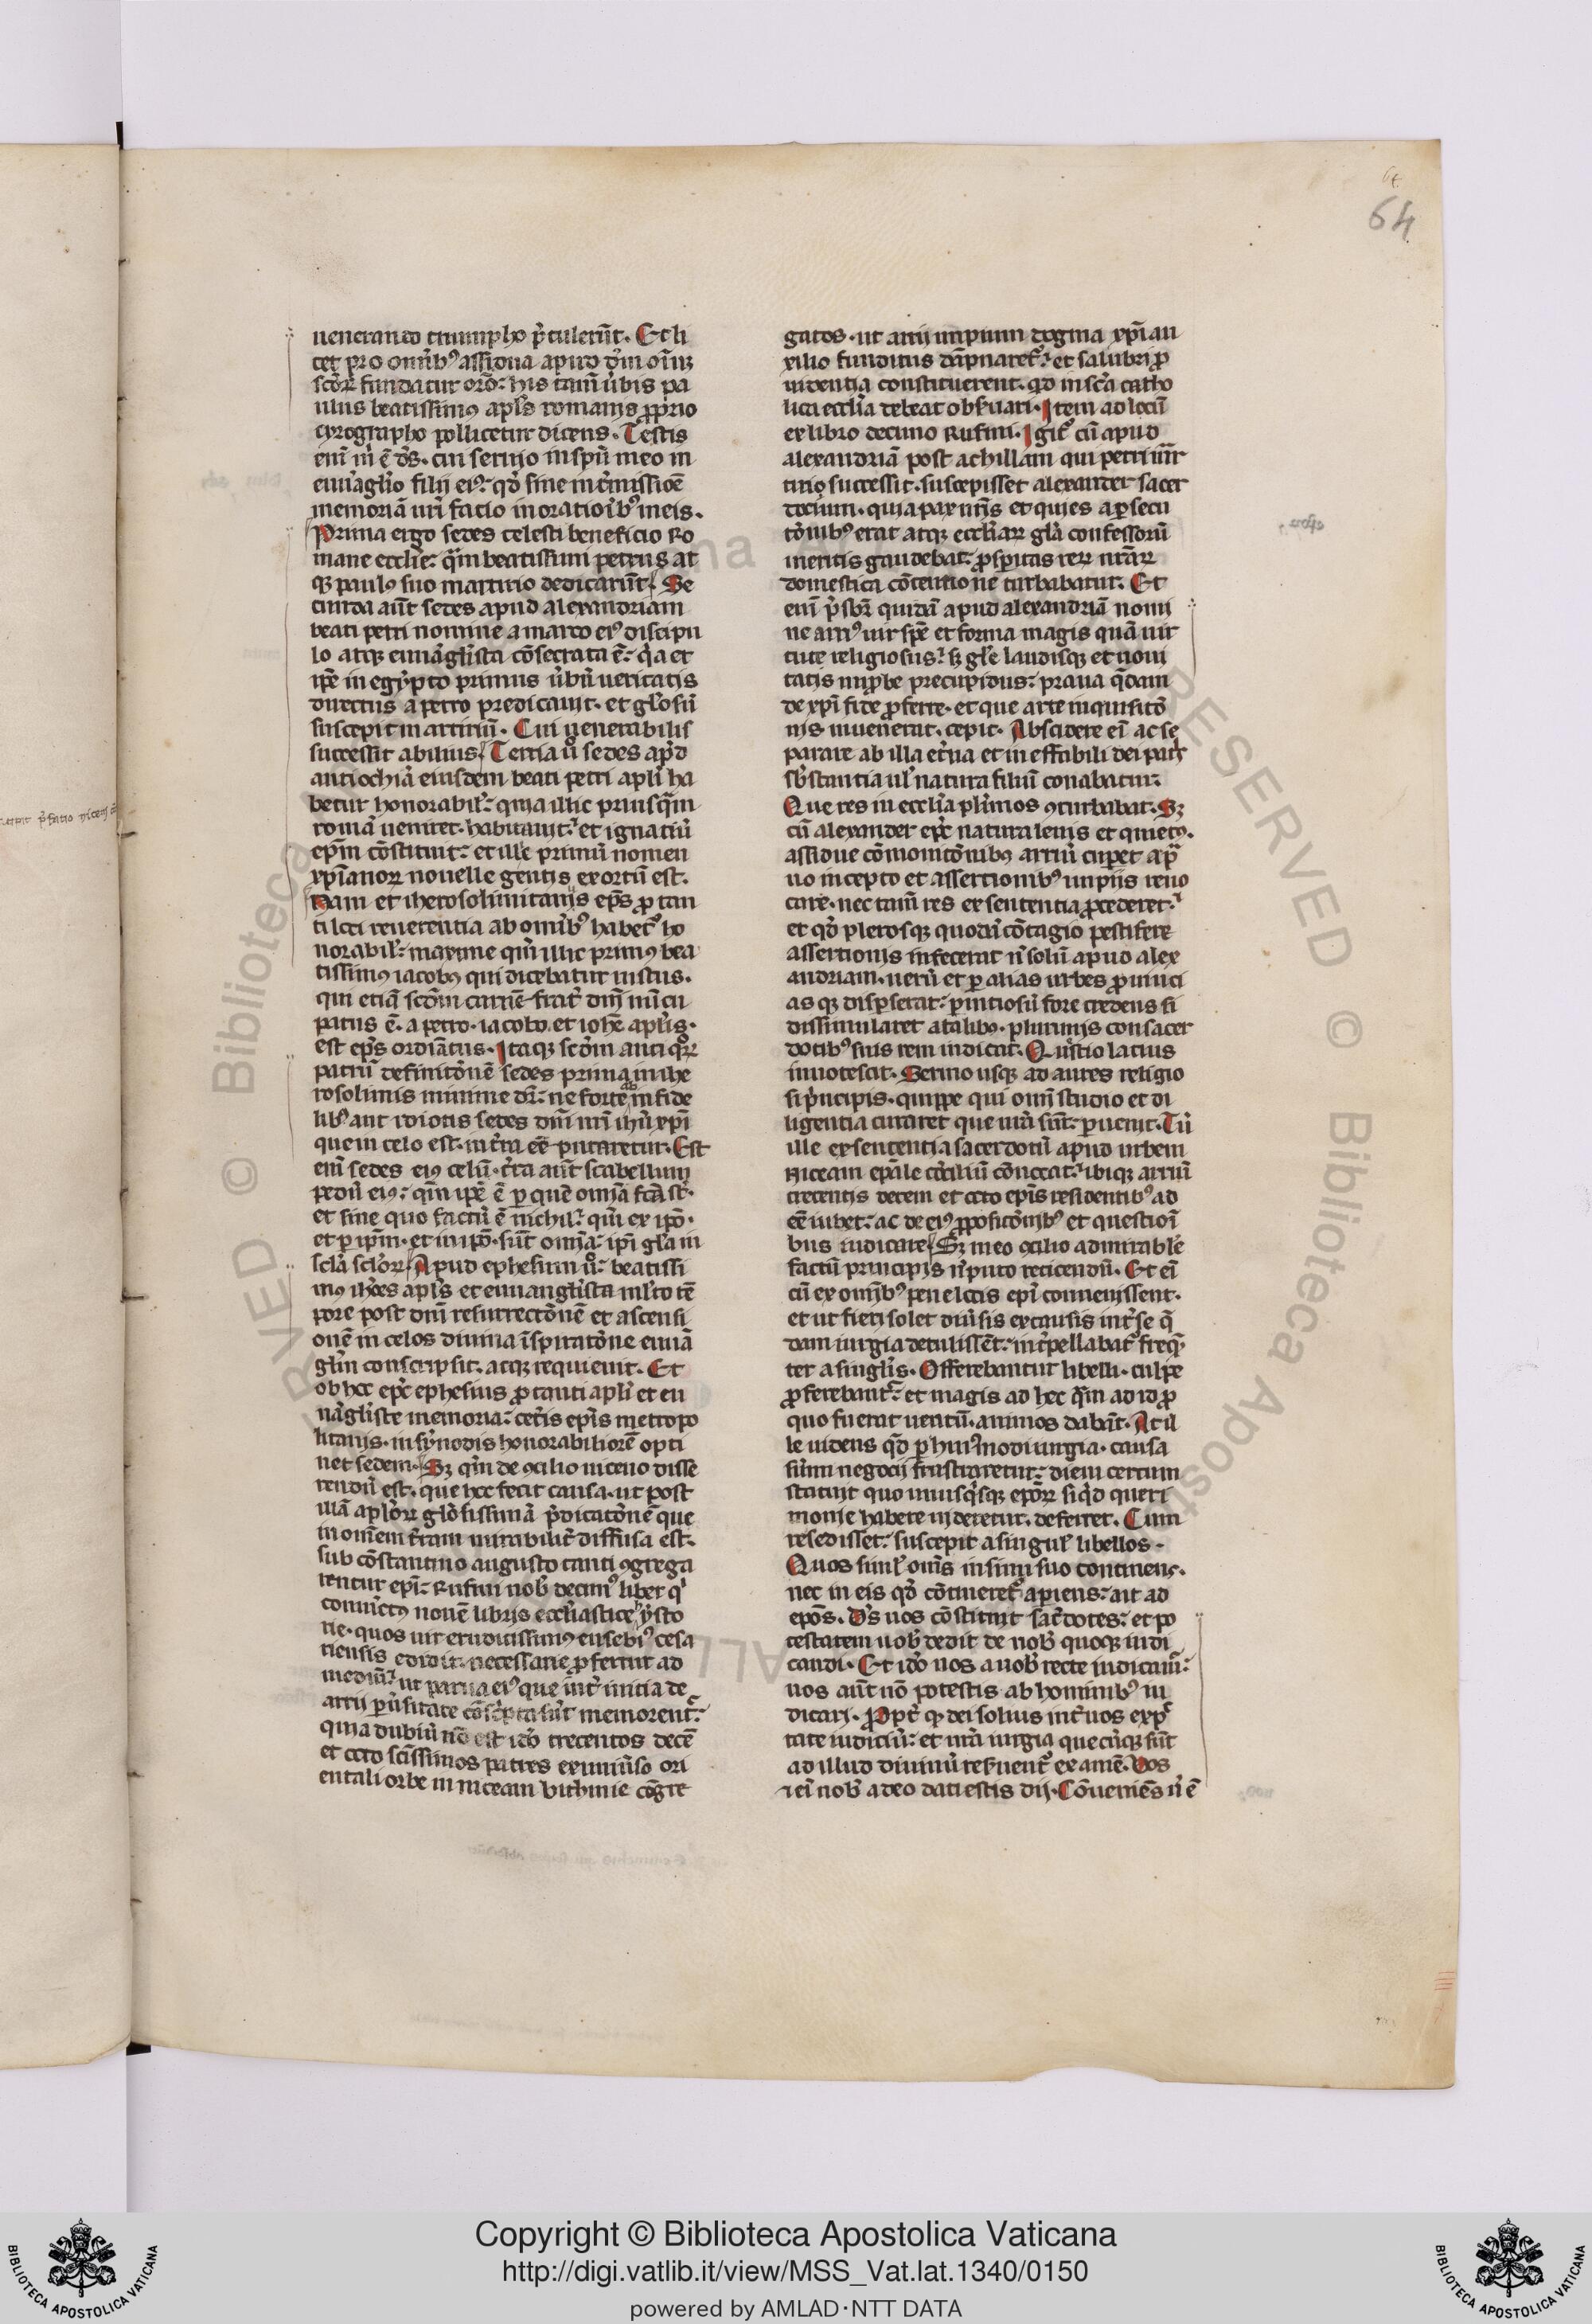 64
uenerando triumpho p̄tulerūt. Et li
cet pro omnib᷒ assidua apud dn̄m oīuꝫ
sc̄oꝝ fundatur orō: his tam̄ ūbis pa
ulus beatissim᷒ apl̄s romanis ꝓprio
cyrographo pollicetur dicens. Testis
eni m̄ ē ds̄. cui seruio in spū meo in
euuāglio filij ei᷒: qd̄ sine int̄missiōe
memoriā ur̄i facio in orationib᷒ meis.
Prima ergo sedes celesti beneficio Ro
mane eccl̄ie: quā beatissimi petrus at
qꝫ paulꝰ suo martirio dedicarūt. Se
cunda aūt sedes apud alexandriam
beati petri nomine a marco ei᷒ discipu
lo atqꝫ euuāglista cōsecrata ē: q̄a et
ip̄e in egypto primus ūbū ueritatis
directus a petro predicauit. et gl̄osū
suscepit martiriū. Cui uenerabilis
successit abilius. Tertia ū sedes apd̄
antiochiā eiusdem beati petri apl̄i ha
betur honorabil̄: quia illic priusq̄m
romā ueniret. habitauit: et ignatiū
ep̄m cōstituit: et ille primū nomen
xp̄ianoꝝ nouelle gentis exortū est.
Nam et iherosolimitanus ep̄s ꝓ tan
ti loci reuerentia ab omib᷒ habet᷒ ho
norabil̄: maxime qm̄ illic prim᷒ bea
tissim᷒ iacob᷒ qui dicebatur iustus.
qui etiā scdm̄ carnē frat̄ dn̄i nūcu
patus ē. a petro. iacobo. et ioh̄e apl̄is.
est ep̄s ordīatus. Itaqꝫ scdm̄ antiquoꝝ
patrū definitōnē sedes prima in ihe
rosolimis minime dr̄: ne forte ab infide
lib᷒ aut idiotis sedes dn̄i nr̄i ih̄u xp̄i
que in celo est. in t̄ra eē putaretur. Est
eni sedes ei᷒ celū. t̄ra aūt scabellum
pedū ei᷒: qm̄ ip̄e ē ꝑ quē omīa fc̄a st̄.
et sine quo factū ē nichil: qm̄ ex ip̄o.
et ꝑ ip̄m. et in ip̄o. sūt omīa: ip̄i gl̄a in
scl̄a scl̄oꝝ. Apud ephesum ū: beatissi
m᷒ ioh̄es apl̄s et euuanglista ml̄to tē
pore post dn̄i resurrectōnē et ascensi
onē in celos diuina īspiratōne euuā
gl̄m conscripsit: atqꝫ requieuit. Et
ob hoc ep̄c ephesius ꝓ tanti apl̄i et eu
uāgliste memoria: cet̄is ep̄is metropo
litanis. in synodis honorabiliorē opti
net sedem. Sꝫ qm̄ de ꝯcilio niceno disse
rendū est. que hoc fecit causa. ut post
illā apl̄oꝝ gl̄osissimā p̄dicatōnē que
in omēm t̄ram mirabilit̄ diffusa est.
sub cōstantino augusto tanti ꝯgrega
rentur ep̄i: Rufini nob̄ decim᷒ liber qͥ
conuict᷒ nouē libris eccl̄iastice hysto
rie. quos uir eruditissim᷒ eusebi᷒ cesa
riensis edidit: necessarie ꝓfertur ad
mediū: ut parua ei᷒ que int̄ initia de
arrij ꝑuersitate cōscripta sūt memorent᷒:
quia dubiū nō est ido̅ trecentos decē
et octo sc̄issimos patres ex uniūso ori
entali orbe in niceam bithinie cōgre
gatos. ut arrij impium dogma xp̄i au
xilio funditus dāpnaret᷒: et salubri ꝓ
uidentia constituerent. qd̄ in sc̄a catho
lica eccl̄ia debeat obs̄uari. Item ad locū
ex libro decimo Rufini. Igit᷒ cū apud
alexandriā post achillam qui petri mr̄
tirio successit. suscepisset alexander sacer
dotium. quia pax nr̄is et quies a ꝑsecu
tōnib᷒ erat atqꝫ eccl̄iaꝝ gl̄a confessorū
meritis gaudebat: ꝓsꝑitas reꝝ nr̄aꝝ
domestica cōtentione turbabatur. Et
enī p̄sbr̄ quidā apud alexandriā nomi
ne arri᷒ uir spē et forma magis quā uir
tute religiosus: sꝫ gl̄e laudisqꝫ et noui
tatis imꝓbe precupidus: praua q̄dam
de xp̄i fide ꝓferre. et que arte inquisitō
nis inuenerat. cepit. Abscidere eī ac se
parare ab illa et̄na et ineffabili dei patr̄
sb̄stantia ul̄ natura filiū conabatur:
Que res in eccl̄ia pl̄imos ꝯturbabat. Sꝫ
cū alexander ep̄c natura lenis et quiet᷒.
assidue cōmonitōnibꝫ arriū cuꝑet a pͣ
uo incepto et assertionib᷒ impijs reuo
care. nec tam̄ res ex sententia ꝓcederet:
et qd̄ plerosqꝫ quodā cōtagio pestifere
assertionis infecerat n̄ solū apud alex
andriam. uerū et ꝑ alias urbes ꝓuinci
as qꝫ disꝑserat: ꝑnitiosū fore credens si
dissimularet a talibꝫ. plurimis consacer
dotib᷒ suis rem indicat. Qūstio latius
innotescit. Sermo usqꝫ ad aures religio
si p̄ncipis. quippe qui omī studio et di
ligentia curaret que nr̄a sūt: ꝑuenit. Tū
ille ex sententia sacerdotū apud urbem
Niceam epāle cōciliū cōuocat: ibiqꝫ arriū
trecentis decem et octo ep̄is residentib᷒ ad
eē iubet: ac de ei᷒ ꝓpositōnib᷒ et questioī
bus iudicare. Sꝫ in eo ꝯcilio admirabl̄e
factū principis n̄ puto reticendū. Et eī
cū ex omib᷒ pene locis ep̄i conuenissent.
et ut fieri solet diūsis ex causis int̄ se q̄
dam iurgia detulissēt: int̄pellabat᷒ freqn̄
ter a singl̄is. Offerebantur libelli. culpe
ꝓferebant᷒: et magis ad hec q̄m ad id ꝓ
quo fuerat uentū. animos dabāt. At il
le uidens qd̄ ꝑ hui᷒modi iurgia. causa
summi negocij frustraretur: diem certum
statuit quo unusq̄sqꝫ ep̄oꝝ siqd̄ queri
monie habere uideretur. deferret. Cum
resedisset: suscepit a singul̄ libellos.
Quos simul̄ om̄s in sinu suo continens.
nec in eis qd̄ cōtineret᷒ aꝑiens: ait ad
ep̄os. Ds̄ uos cōstituit sac̄dotes: et po
testatem uob̄ dedit de nob̄ quoqꝫ iudi
candi. Et ido̅ nos a uob̄ recte iudicam̄:
uos aūt nō potestis ab hominib᷒ iu
dicari. Ꝓpt̄ qd̄ dei solius int̄ uos expͨ
tate iudiciū: et ur̄a iurgia quecūqꝫ sūt
ad illud diuinū res̄uent᷒ examē. Vos
etenī nob̄ a deo dati estis dij. Cōueniēs n̄ ē
Copyright © Biblioteca Apostolica Vaticana
http://digi.vatlib.it/view/MSS_Vat.lat.1340/0150
powered by AMLAD·NTT DATA